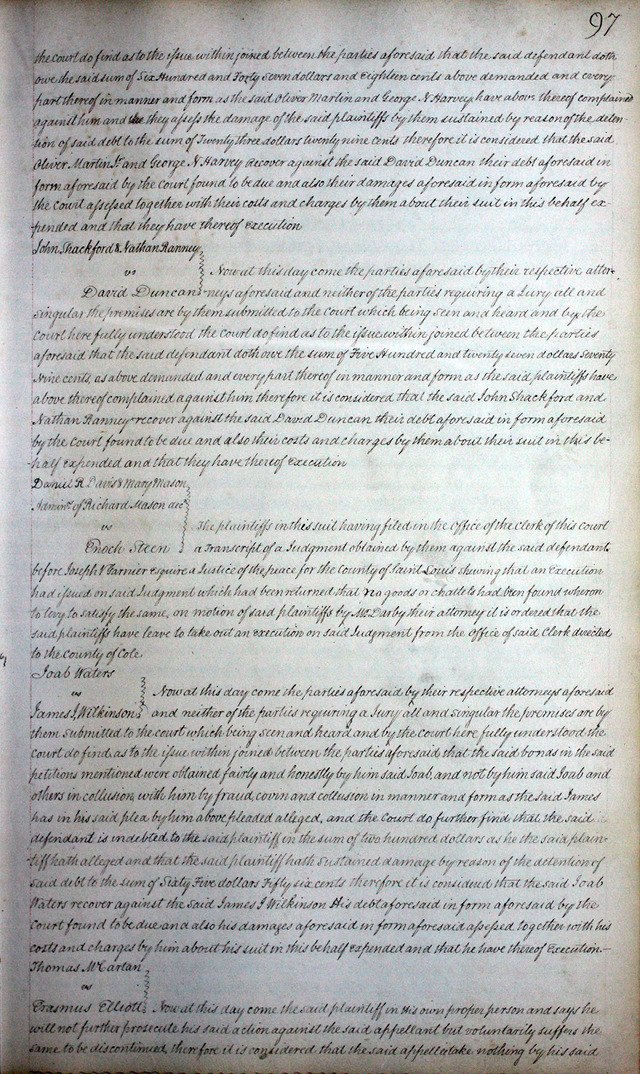 97
the court do find as to the issue within joined between the parties aforesaid that the said defendant doth
owe the said sum of Six Hundred and Forty Seven dollars and Eighteen cents above demanded and every
part thereof in manner and form as the said Oliver Martin and George N Harvey have above thereof complained
against him and they assess the damage of the said plaintiffs by them sustained by reason of the deten-
tion of said debt to the sum of Twenty three dollars twenty nine cents therefore it is considered that the said
Oliver Martin Jr and George N Harvey recover against the said David Duncan their debt aforesaid in
form aforesaid by the Court found to be due and also their damages aforesaid in form aforesaid by
the Court assessed together with their costs and charges by them about their suit in this behalf ex-
pended and that they have thereof execution
John Shackford & Nathan Ranney
vs Now at this day come the parties aforesaid by their respective attor-
David Duncan neys aforesaid and neither of the parties requiring a Jury all and
Singular the premises are by them submitted to the court which being seen and heard and by the
Court here fully understood the court do find as to the issue within joined between the parties
aforesaid that the said defendant doth owe the sum of Five Hundred and twenty seven dollars Seventy
Nine cents, as above demanded and every part thereof in manner and form as the said plaintiffs have
above thereof complained against him therefore it is considered that the said John Shackford and
Nathan Ranney recover against the said David Duncan their debt aforesaid in form aforesaid
by the Court found to be due and also their costs and charges by them about their suit in this be-
half expended and that they have thereof Execution
Daniel R Davis & Mary Mason
Adminrs of Richard Mason decd
vs The plaintiffs in this suit having filed in the Office of the Clerk of this court
Enoch Steen a transcript of a Judgment obtained by them against the said defendant
before Joseph V Garnier esquire a Justice of the peace for the County of Saint Louis shewing that an Execution
had issued on said Judgment which had been returned that no goods or chattels had been found wheron
to levy to satisfy the same, on motion of said plaintiffs by Mr Darby their attorney it is ordered that the
said plaintiffs have leave to take out an execution on said Judgment from the Office of said Clerk directed
to the County of Cole
Joab Waters
vs Now at this day come the parties aforesaid by their respective attorneys aforesaid
James J Wilkinson and neither of the parties requiring a Jury all and singular the premises are by
them submitted to the court which being seen and heard and by the court here fully understood the
Court do find as to the issue within joined between the parties aforesaid, that the said bonds in the said
petitions mentioned were obtained fairly and honestly by him said Joab, and not by him said Joab and
others in collusion with him by fraud, covin and collusion in manner and form as the said James
has in his said plea by him above pleaded alleged, and the Court do further find that the said
defendant is indebted to the said plaintiff in the sum of two hundred dollars as he the said plain-
tiff hath alleged and that the said plaintiff hath sustained damage by reason of the detention of
said debt to the sum of Sixty Five dollars Fifty six cents therefore it is considered that the said Joab
Waters recover against the said James J Wilkinson His debt aforesaid in form aforesaid by the
Court found to be due and also his damages aforesaid in form aforesaid assessed together with his
costs and charges by him about his suit in this behalf expended and that he have thereof Execution
Thomas McCartan
vs
Erasmus Elliott Now at this day come the said plaintiff in His own proper person and says he
will not further prosecute his said action against the said appellant but voluntarily suffers the
same to be discontinued, therefore it is considered that the said appellee take nothing by his said